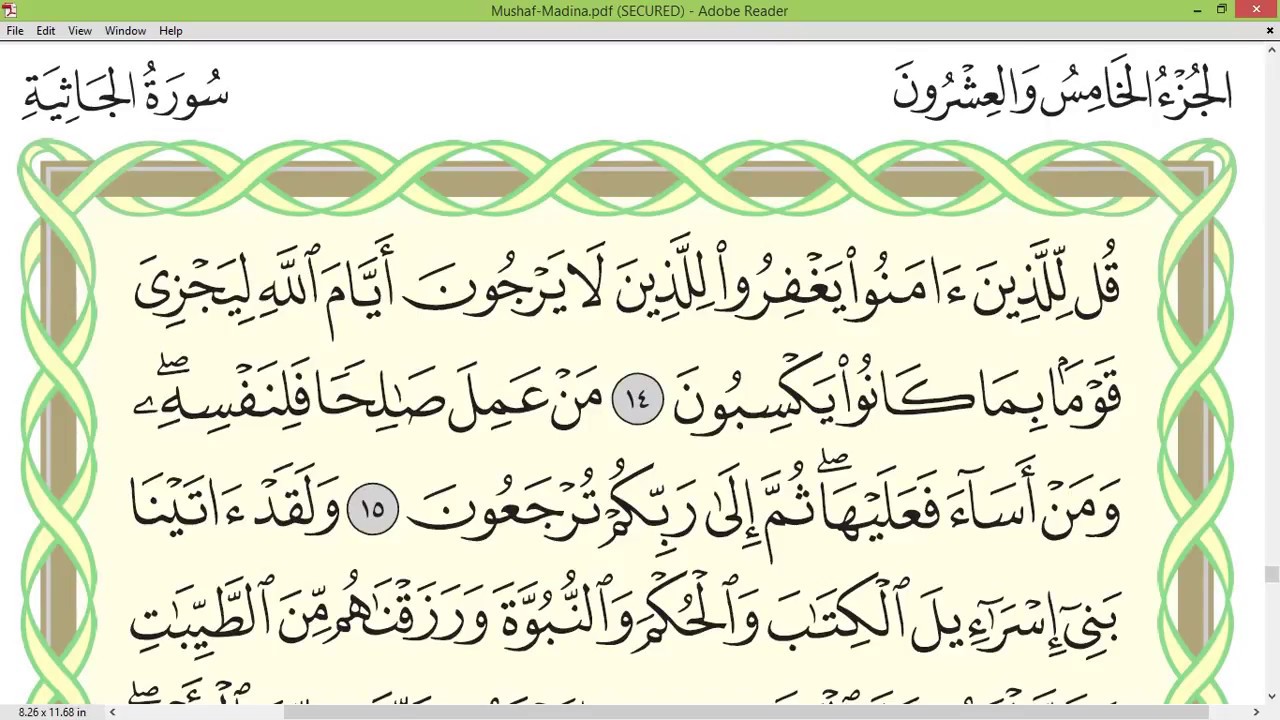 Mushaf-Madina.pdf (SECURED) - Adobe Reader
File Edit View Window Help
الجُزْءُ الخَامِسُ وَالعِشْرُونَ
سُورَةُ الجَاثِيَةِ
قُل لِّلَّذِينَ ءَامَنُواْ يَغْفِرُواْ لِلَّذِينَ لَا يَرْجُونَ أَيَّامَ ٱللَّهِ لِيَجْزِىَ
قَوْمَۢا بِمَا كَانُواْ يَكْسِبُونَ ١٤ مَنْ عَمِلَ صَٰلِحٗا فَلِنَفْسِهِۦۖ
وَمَنْ أَسَآءَ فَعَلَيْهَاۖ ثُمَّ إِلَىٰ رَبِّكُمْ تُرْجَعُونَ ١٥ وَلَقَدْ ءَاتَيْنَا
بَنِىٓ إِسْرَٰٓءِيلَ ٱلْكِتَٰبَ وَٱلْحُكْمَ وَٱلنُّبُوَّةَ وَرَزَقْنَٰهُم مِّنَ ٱلطَّيِّبَٰتِ
8.26 x 11.68 in